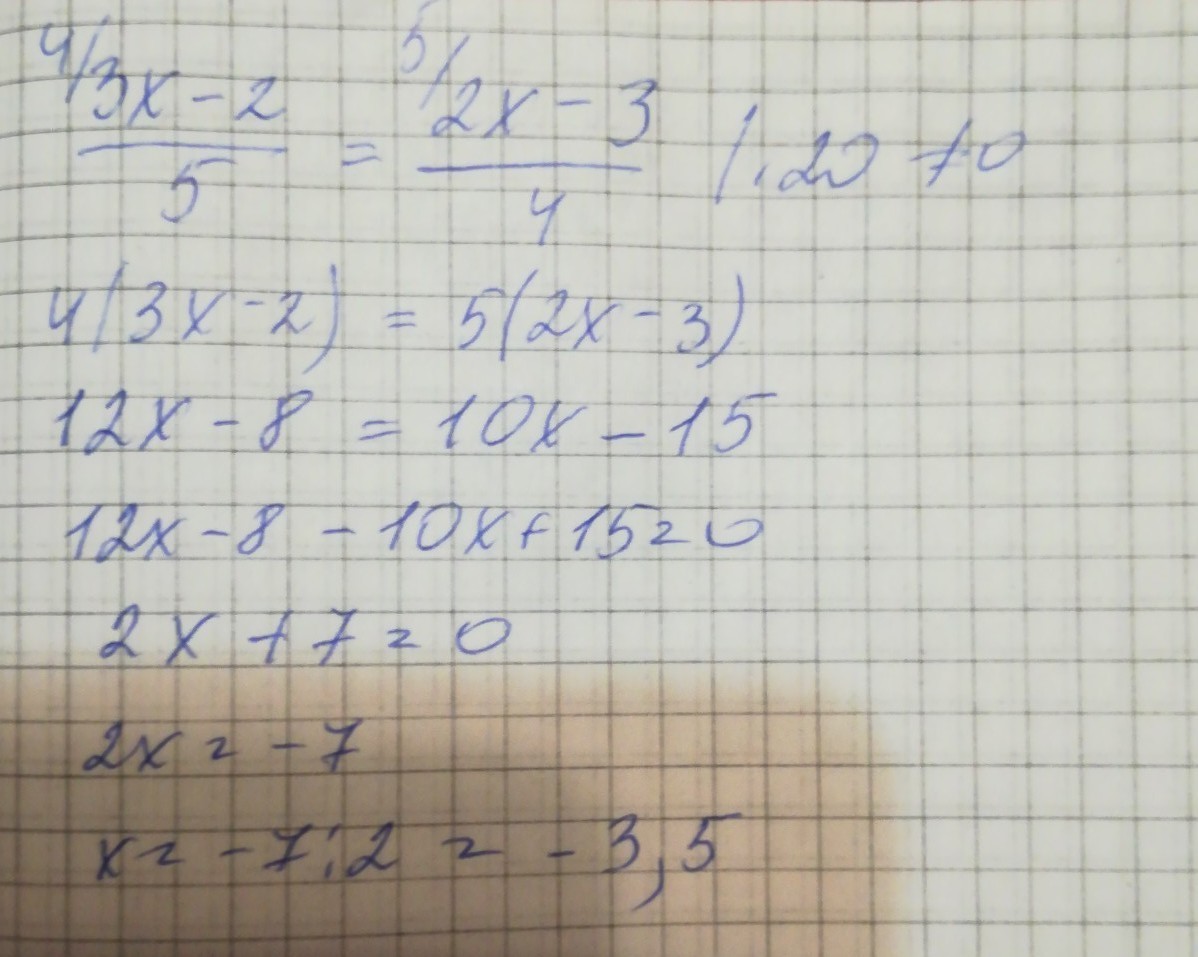 4/ 3x - 2 / 5 = 5/ 2x - 3 / 4 | · 20 ≠ 0
4(3x - 2) = 5(2x - 3)
12x - 8 = 10x - 15
12x - 8 - 10x + 15 = 0
2x + 7 = 0
2x = -7
x = -7:2 = -3,5